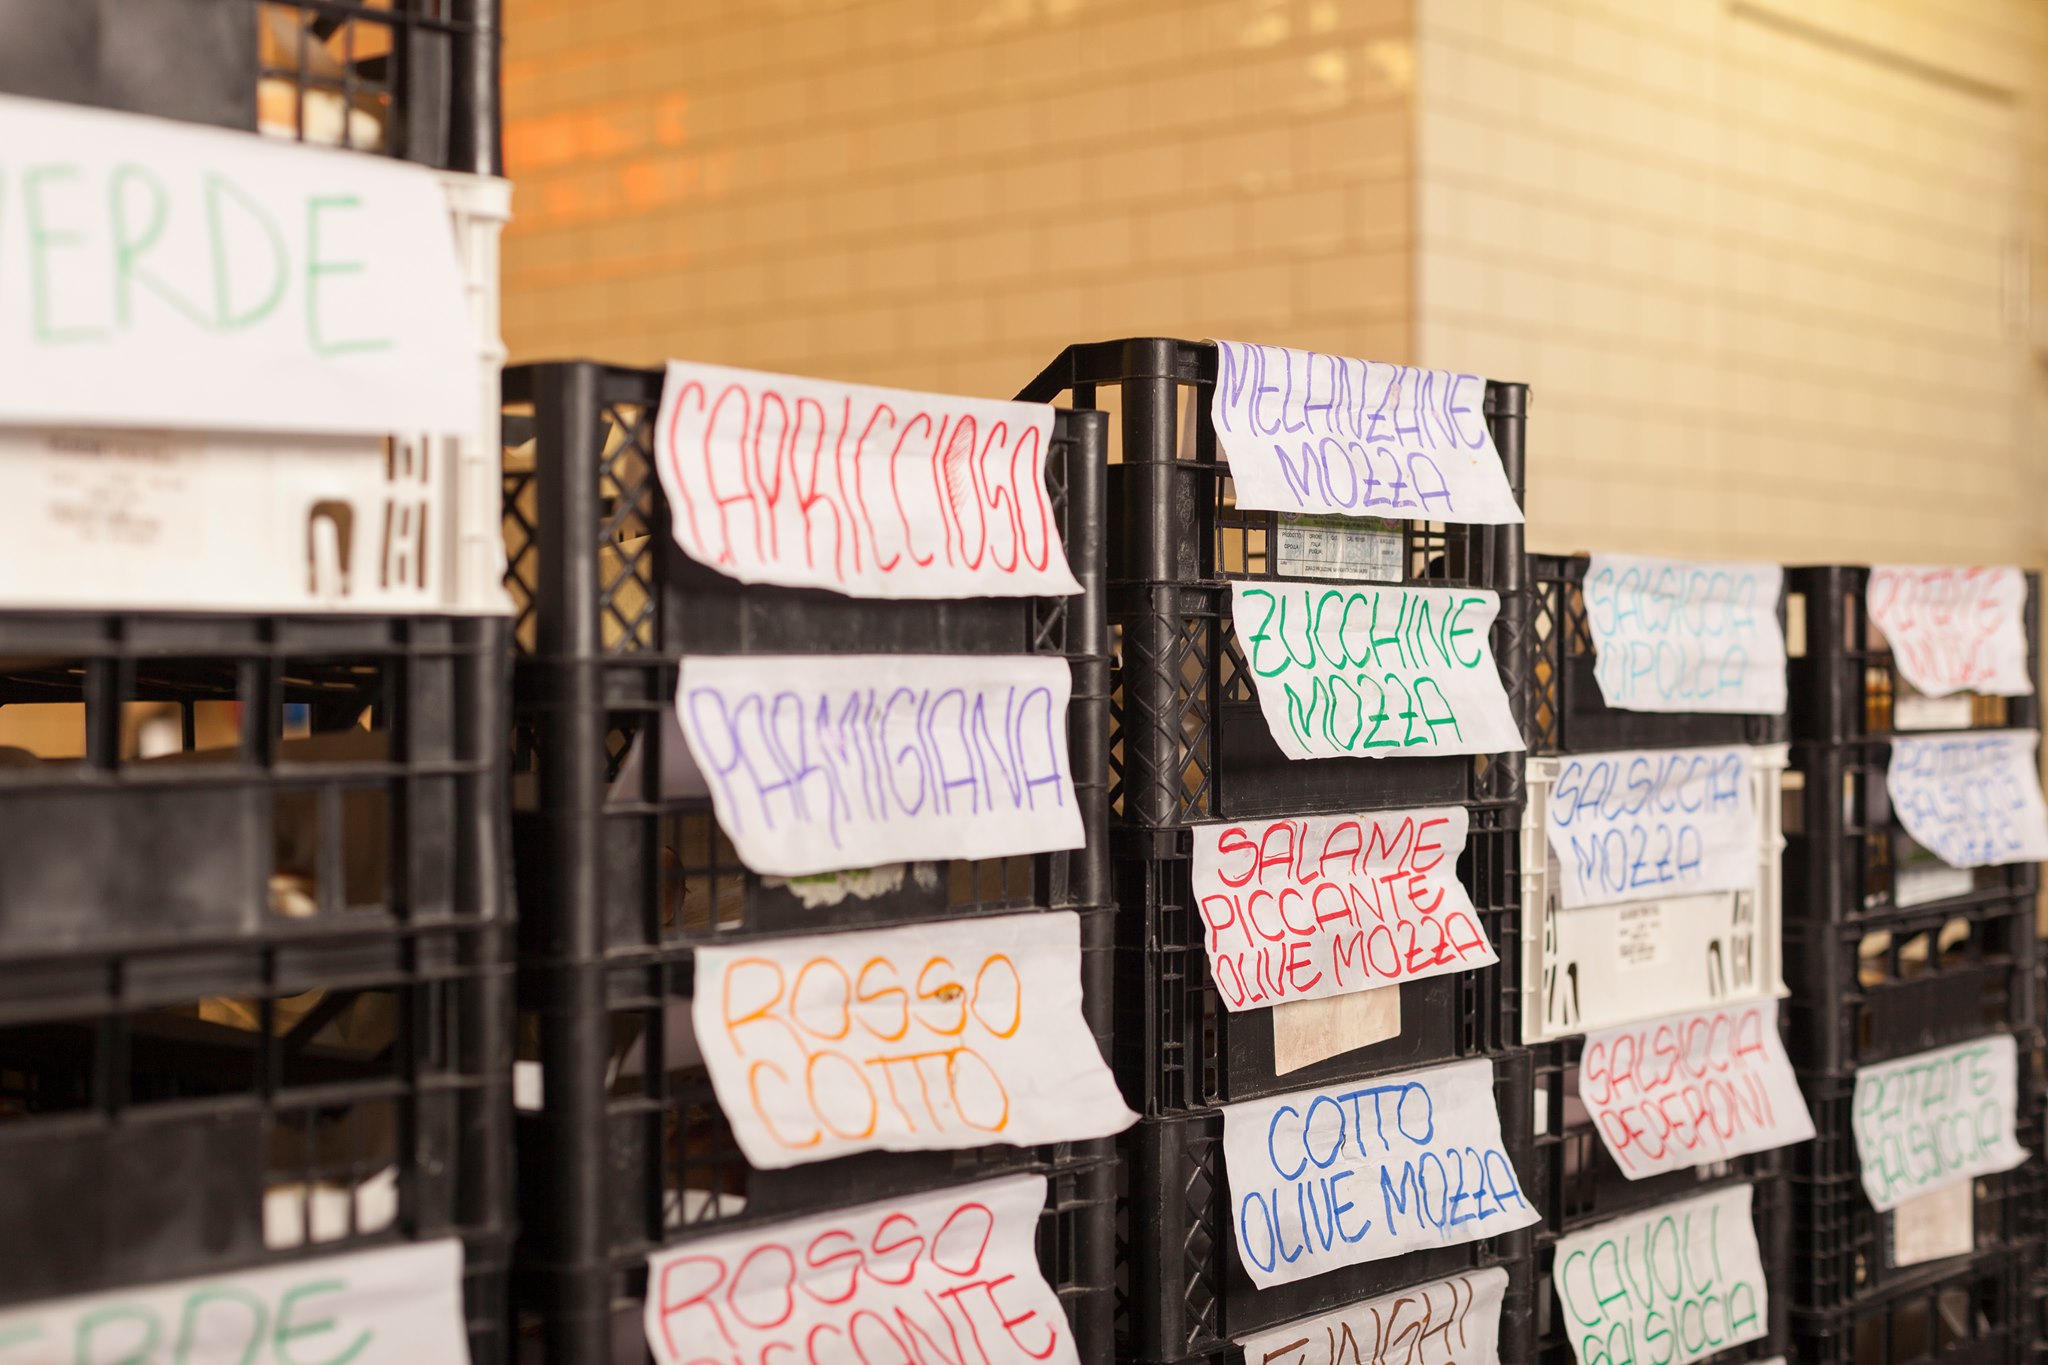 VERDE
ERDE
CAPRICCIOSO
PARMIGIANA
ROSSO
COTTO
ROSSO
PICCANTE
MELANZANE
MOZZA
ZUCCHINE
MOZZA
SALAME
PICCANTE
OLIVE MOZZA
COTTO
OLIVE MOZZA
FUNGHI
SALSICCIA
CIPOLLA
SALSICCIA
MOZZA
SALSICCIA
PEPERONI
CAVOLI
SALSICCIA
PATATE
PATATE
SALSICCIA
MOZZA
PATATE
SALSICCIA